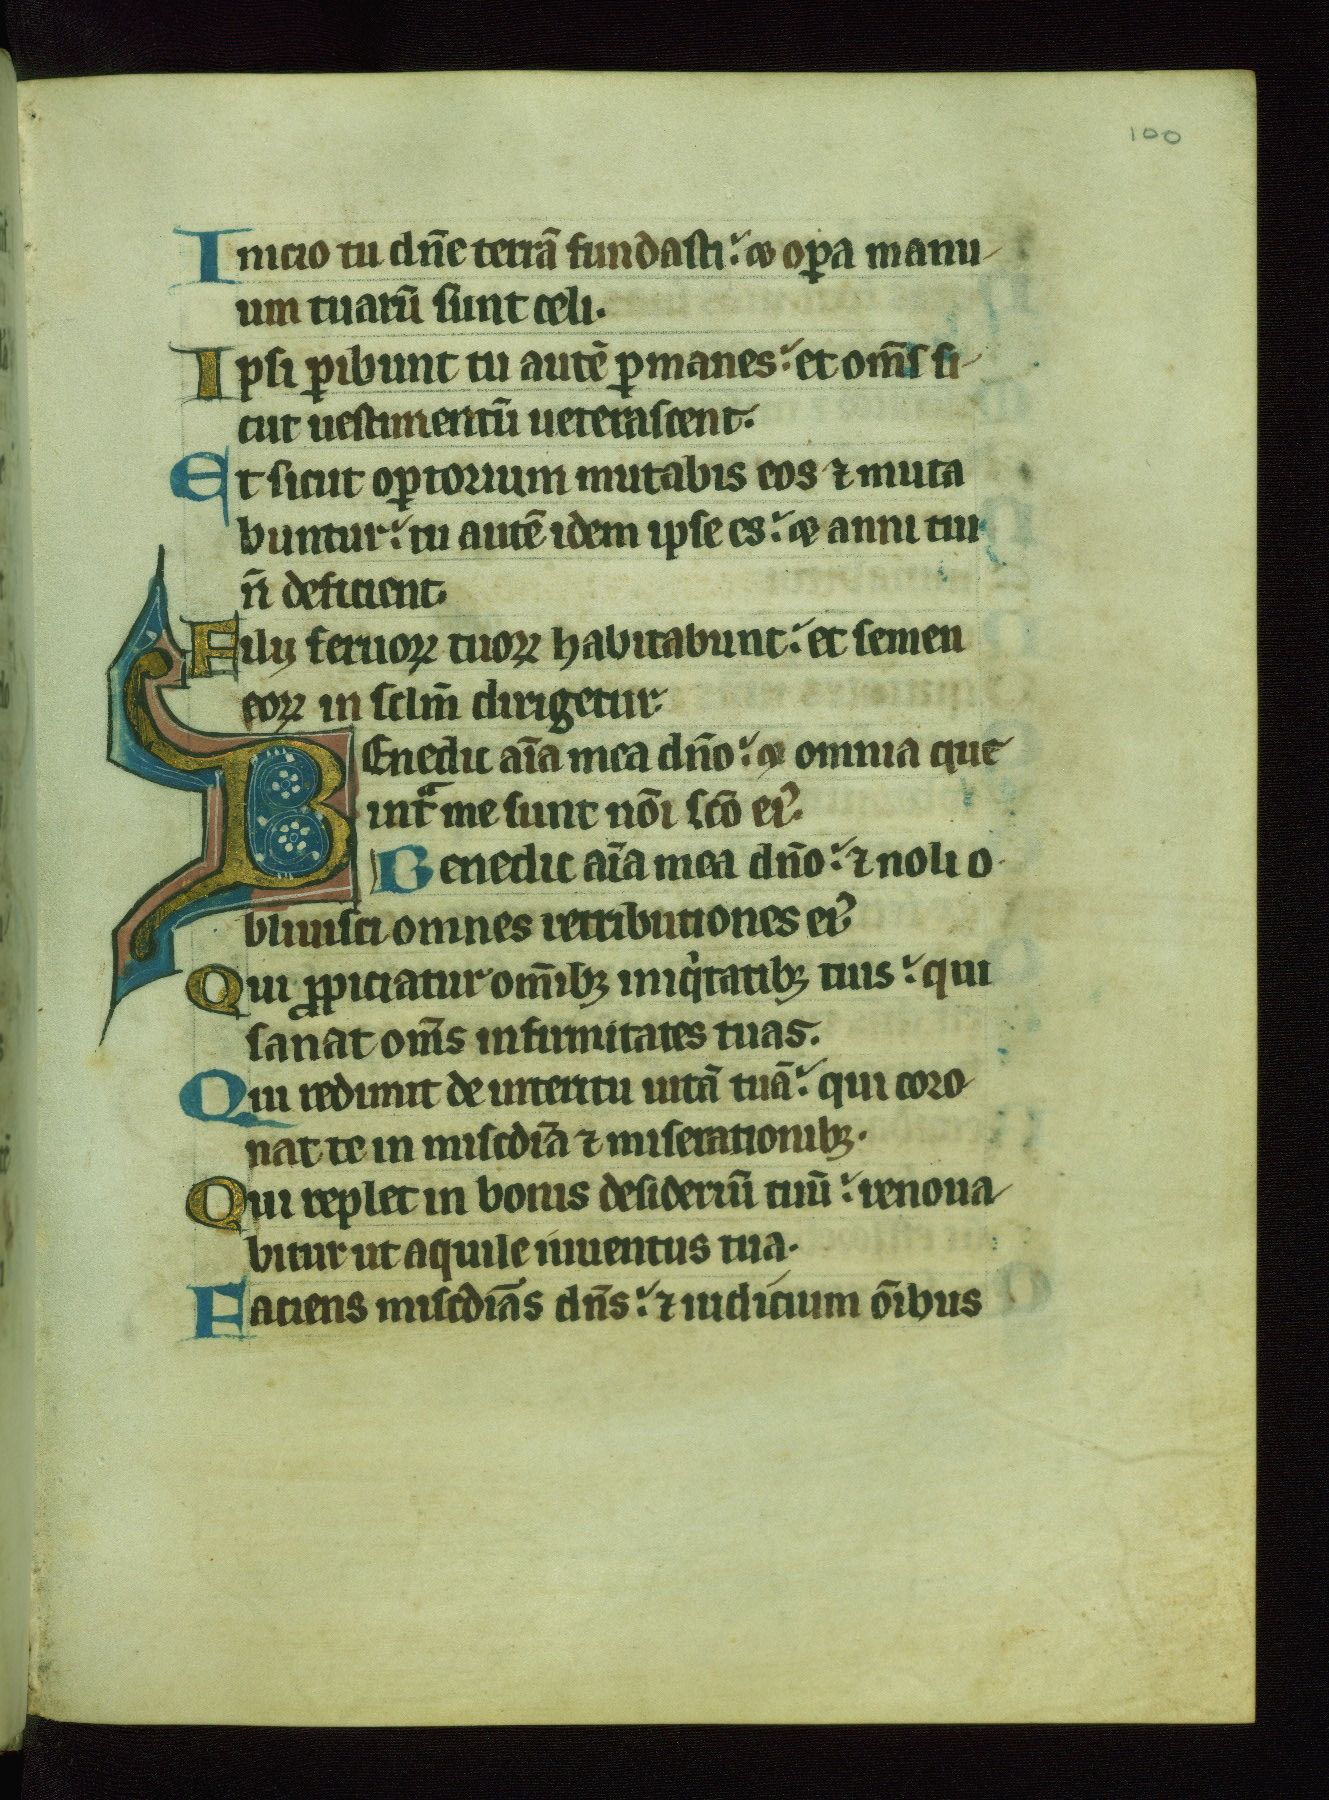 100
Inicio tu dn̄e terrā fundasti: ⁊ oꝑa manu
um tuarū sunt celi.
Ipsi ꝑibunt tu autē ꝑmanes: et om̄s si
cut uestimentū ueterascent.
Et sicut oꝑtorium mutabis eos ⁊ muta
buntur: tu autē idem ipse es: ⁊ anni tui
n̄ deficient.
Filij seruoꝝ tuoꝝ habitabunt: et semen
eoꝝ in sclm̄ dirigetur.
BEnedic aīa mea dn̄o: ⁊ omnia que
intᵃ me sunt nōi scō eiꝰ.
Benedic aīa mea dn̄o: ⁊ noli o
bliuisci omnes retributiones eiꝰ
Qui ꝓpiciatur om̄ibꝫ iniqͥtatibꝫ tuis: qui
sanat om̄s infirmitates tuas.
Qui redimit de interitu uitā tuā: qui coro
nat te in miscdīa ⁊ miserationibꝫ.
Qui replet in bonis desideriū tuū: renoua
bitur ut aquile iuuentus tua.
Faciens miscdīas dn̄s: ⁊ iudicium ōibus